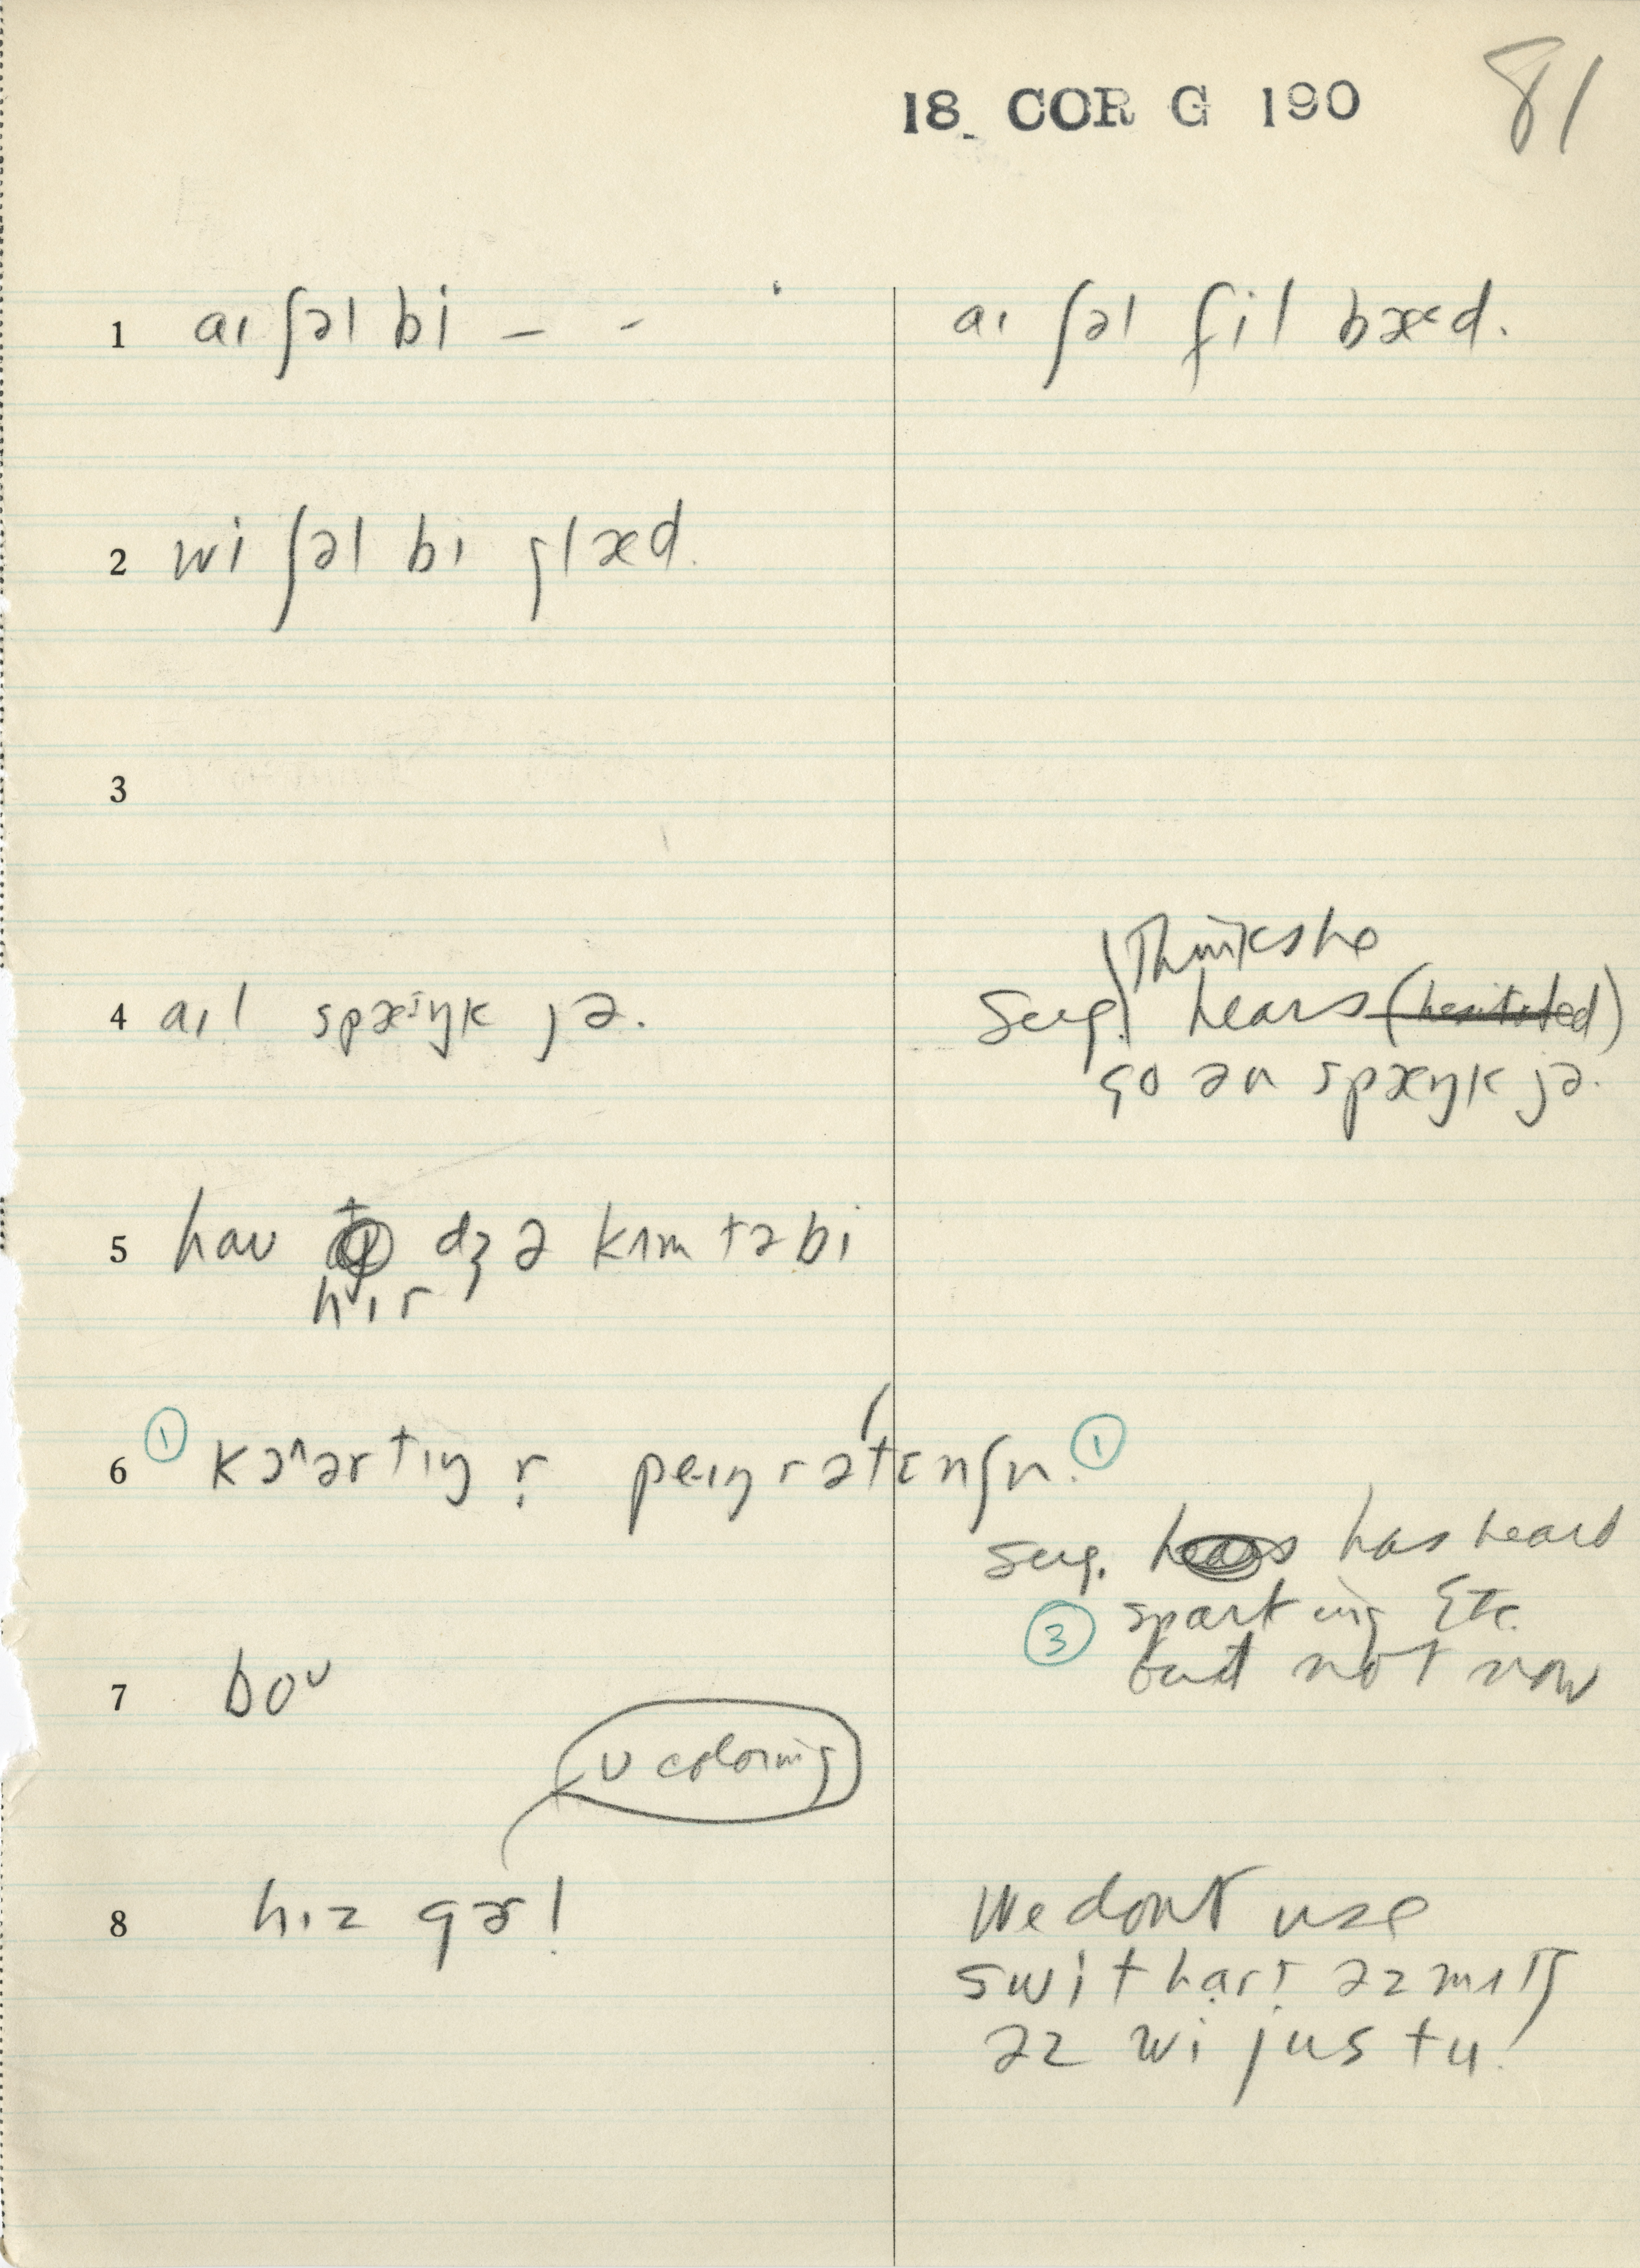 18 COR G 190
81
1 aɪ ʃəl bi – -
aɪ ʃəl fil bæ<æd.
2 wi ʃəl bɪ glæd.
3
Thinks he
4 aɪl spæⁱŋk jə.
Sug. hears (hesitated)
go ən spæŋk jə.
5 haʊ dʒ ə kʌm tə bi
hɪr
6 ① kəʌərtɪŋ r̩ peɪŋ r ətɛnʃn. ①
Sug. has heard
③ sparking Etc.
but not now
7 boᴜ
ʊ coloring
8 hɪz gɚl
We dont use
swithart əz mʌtʃ
əz wi jus tu.